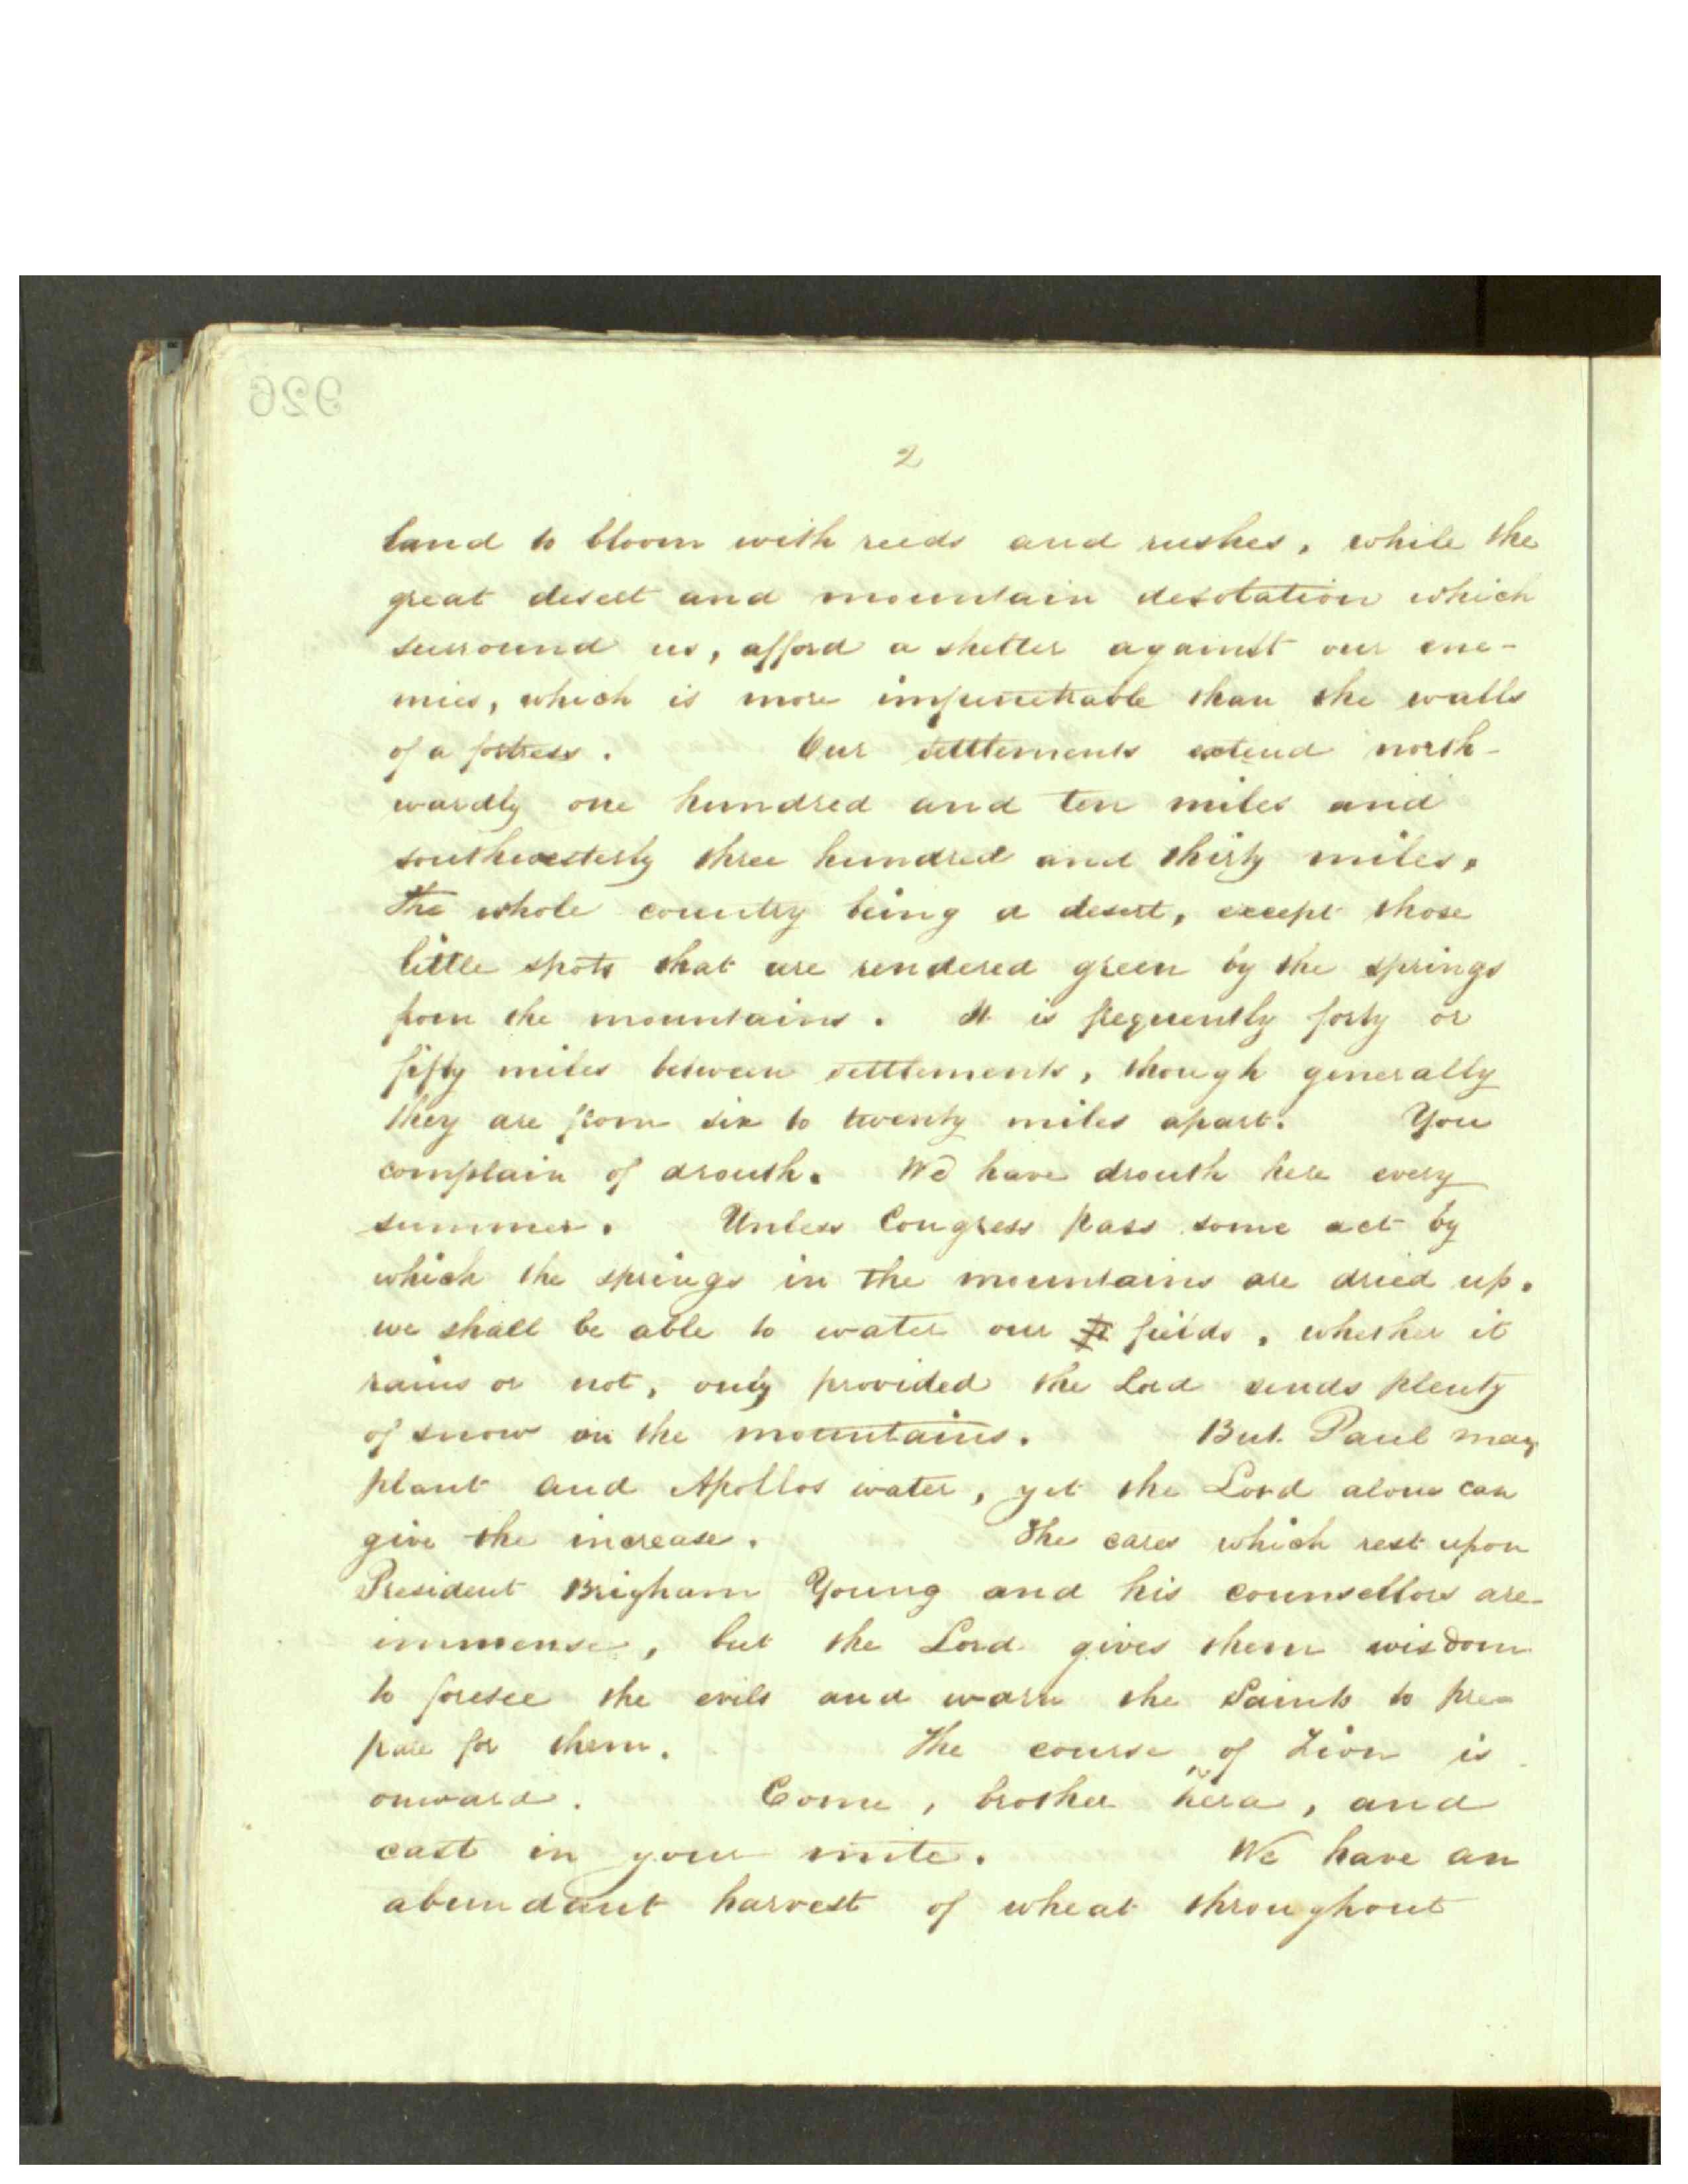 926
2
land to bloom with reeds and rushes, while the
great desert and mountain desolation which
surround us, afford a shelter against our ene-
mies, which is more impenetrable than the walls
of a fortress. Our settlements extend north-
wardly one hundred and ten miles and
southwesterly three hundred and thirty miles.
The whole country being a desert, except those
little spots that are rendered green by the springs
from the mountains. It is frequently forty or
fifty miles between settlements, though generally
they are from six to twenty miles apart. You
complain of drouth. We have drouth here every
summer. Unless Congress pass some act by
which the springs in the mountains are dried up.
we shall be able to water our fields, whether it
rains or not, only provided the Lord sends plenty
of snow on the mountains. But Paul may
plant and Apollos water, yet the Lord alone can
give the increase. The cares which rest upon
President Brigham Young and his counsellors are
immense, but the Lord gives them wisdom
to foresee the evils and warn the Saints to pre-
pare for them. The course of Zion is
onward. Come, brother here, and
cast in your mite. We have an
abundant harvest of wheat throughout